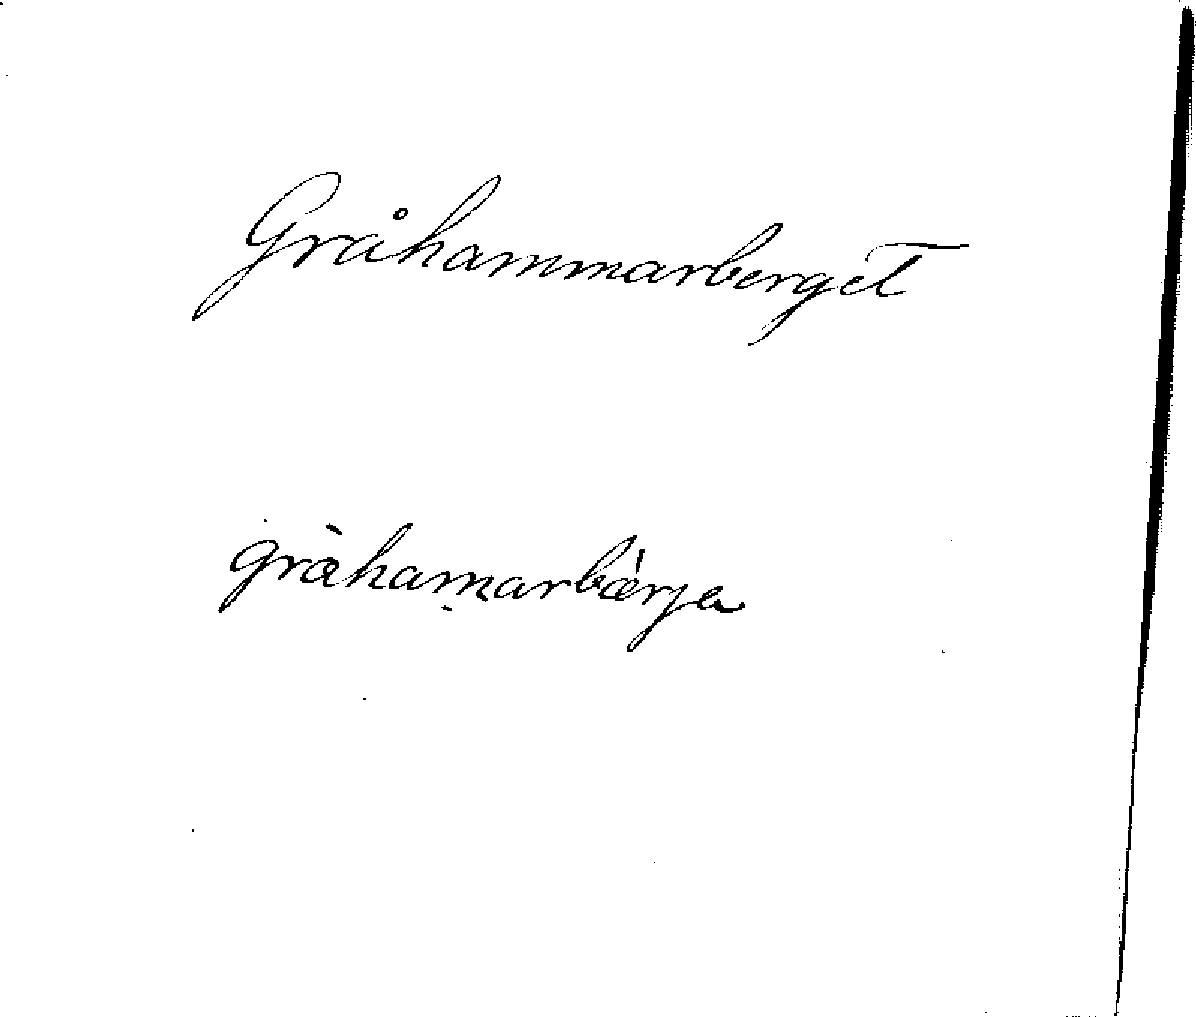 Gråhammarberget
gràhaṃarbǽrje